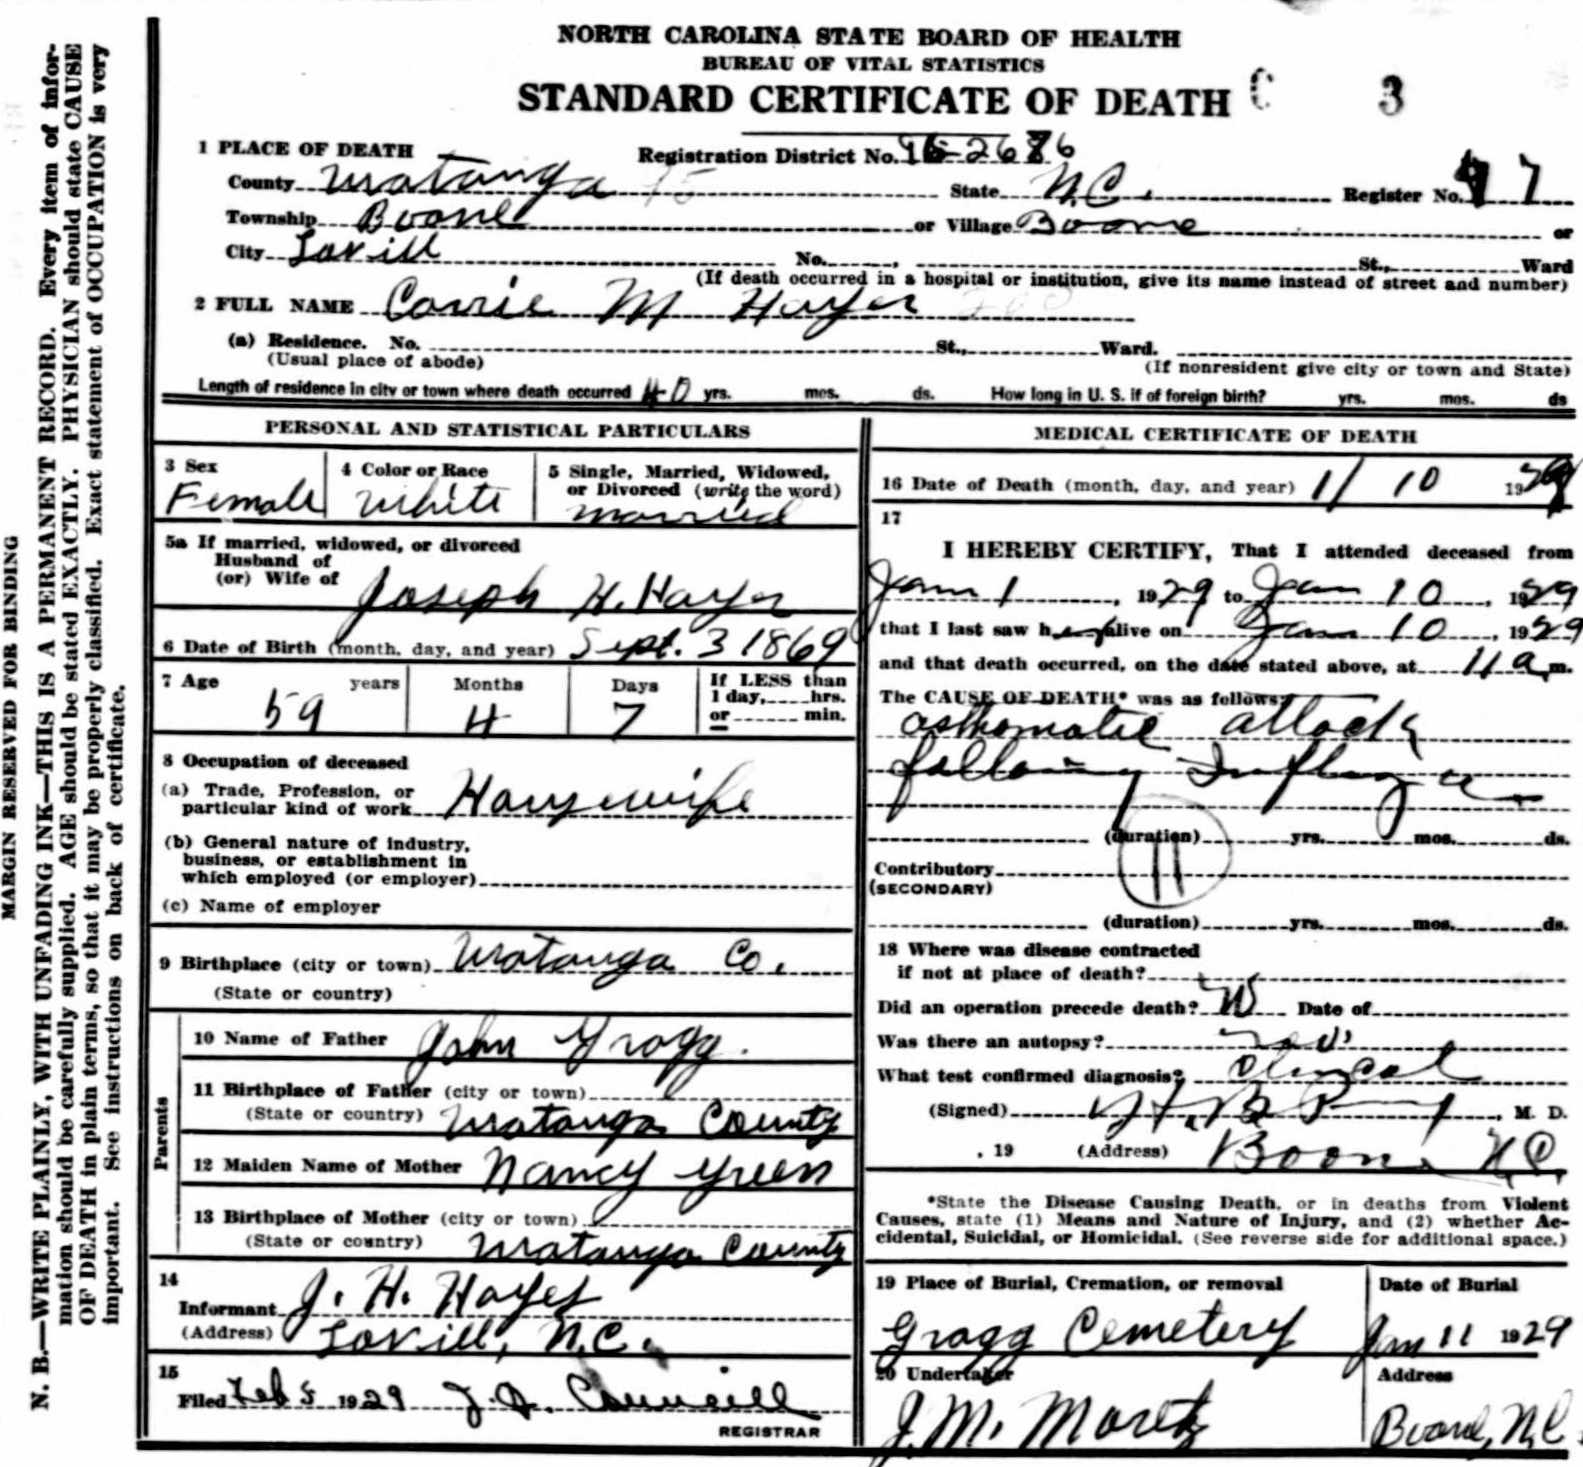 NORTH CAROLINA STATE BOARD OF HEALTH
BUREAU OF VITAL STATISTICS
STANDARD CERTIFICATE OF DEATH C 3
1 PLACE OF DEATH Registration District No. 95-2676
County Watauga 95 State N.C. Register No. 97
Township Boone or Village Boone or
City Lovill No. , St., Ward
(If death occurred in a hospital or institution, give its name instead of street and number)
2 FULL NAME Carrie M Hayes
(a) Residence. No. St., Ward.
(Usual place of abode) (If nonresident give city or town and State)
Length of residence in city or town where death occurred 40 yrs. mos. ds. How long in U. S. if of foreign birth? yrs. mos. ds
PERSONAL AND STATISTICAL PARTICULARS
3 Sex
Female
4 Color or Race
White
5 Single, Married, Widowed,
or Divorced (write the word)
married
5a If married, widowed, or divorced
Husband of
(or) Wife of Joseph H. Hayes
6 Date of Birth (month, day, and year) Sept. 3 1869
7 Age years Months Days If LESS than
1 day, hrs.
or min.
59 4 7
8 Occupation of deceased
(a) Trade, Profession, or
particular kind of work Housewife
(b) General nature of industry,
business, or establishment in
which employed (or employer)
(c) Name of employer
9 Birthplace (city or town) Watauga Co.
(State or country)
Parents
10 Name of Father John Gragg.
11 Birthplace of Father (city or town)
(State or country) Watauga County
12 Maiden Name of Mother Nancy Green
13 Birthplace of Mother (city or town)
(State or country) Watauga County
14
Informant J. H. Hayes
(Address) Lovill, N.C.
15
Filed Feb 5 1929 J. D. Councill
REGISTRAR
MEDICAL CERTIFICATE OF DEATH
16 Date of Death (month, day, and year) 1/ 10 1929
17
I HEREBY CERTIFY, That I attended deceased from
Jan 1, 1929 to Jan 10, 1929
that I last saw her alive on Jan 10, 1929
and that death occurred, on the date stated above, at 11 a m.
The CAUSE OF DEATH* was as follows:
asthmatic attack
following Influenza
(duration) yrs. mos. ds.
11
Contributory
(SECONDARY)
(duration) yrs. mos. ds.
18 Where was disease contracted
if not at place of death?
Did an operation precede death? No Date of
Was there an autopsy? no
What test confirmed diagnosis? Clinical
(Signed) H. B. Perry, M. D.
, 19 (Address) Boone N.C.
*State the Disease Causing Death, or in deaths from Violent
Causes, state (1) Means and Nature of Injury, and (2) whether Ac-
cidental, Suicidal, or Homicidal. (See reverse side for additional space.)
19 Place of Burial, Cremation, or removal
Gragg Cemetery
Date of Burial
Jan 11 1929
20 Undertaker
J. M. Moretz
Address
Boone, N.C.
MARGIN RESERVED FOR BINDING
N. B.—WRITE PLAINLY, WITH UNFADING INK—THIS IS A PERMANENT RECORD. Every item of infor-
mation should be carefully supplied. AGE should be stated EXACTLY. PHYSICIAN should state CAUSE
OF DEATH in plain terms, so that it may be properly classified. Exact statement of OCCUPATION is very
important. See instructions on back of certificate.